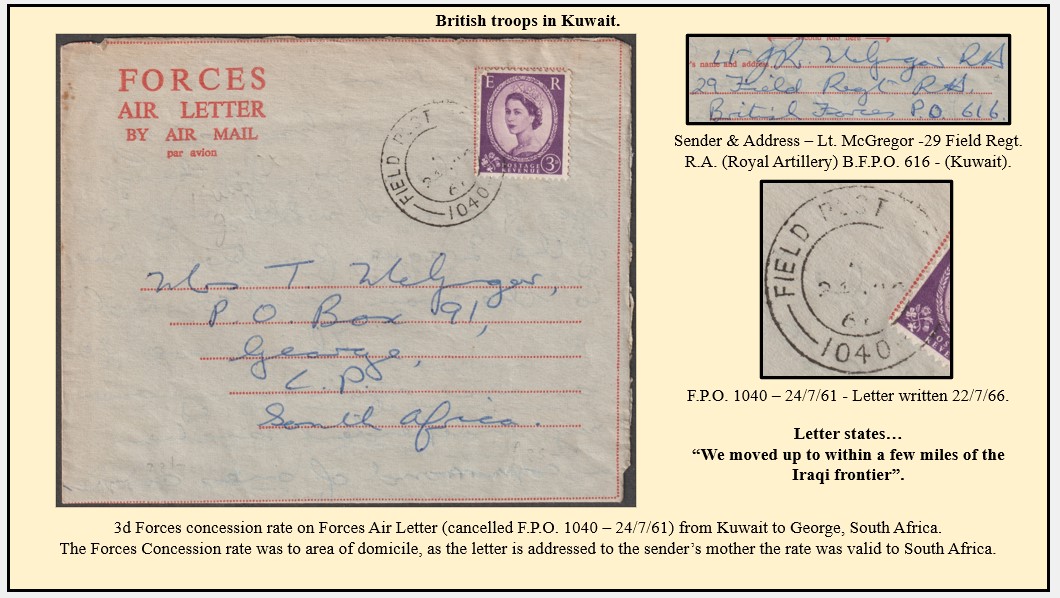 British troops in Kuwait.
FORCES
AIR LETTER
BY AIR MAIL
par avion
E R
POSTAGE
REVENUE 3D
FIELD POST
61
1040
Mrs T. McGregor,
P.O. Box 91,
George,
C.P.
South Africa.
's name and address
Lt J.R. McGregor RA
29 Field Regt R.A.
British Forces P.O. 616.
Sender & Address – Lt. McGregor -29 Field Regt.
R.A. (Royal Artillery) B.F.P.O. 616 - (Kuwait).
FIELD POST
61
1040
F.P.O. 1040 – 24/7/61 - Letter written 22/7/66.
Letter states…
“We moved up to within a few miles of the
Iraqi frontier”.
3d Forces concession rate on Forces Air Letter (cancelled F.P.O. 1040 – 24/7/61) from Kuwait to George, South Africa.
The Forces Concession rate was to area of domicile, as the letter is addressed to the sender’s mother the rate was valid to South Africa.